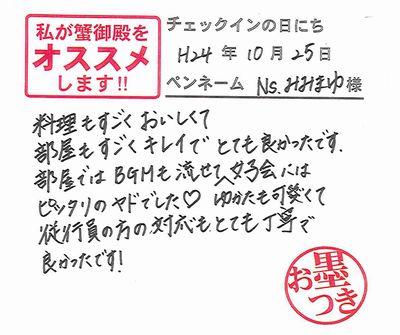 私が蟹御殿を
オススメ
します!!
チェックインの日にち
H24年10月25日
ペンネーム Ns.みおまゆ様
料理もすごくおいしくて
部屋もすごくキレイでとても良かったです.
部屋ではBGMも流せて、女子会には
ピッタリのヤドでした♡ ゆかたも可愛くて
従行員の方の対応もとても丁寧で
良かったです!
お墨つき